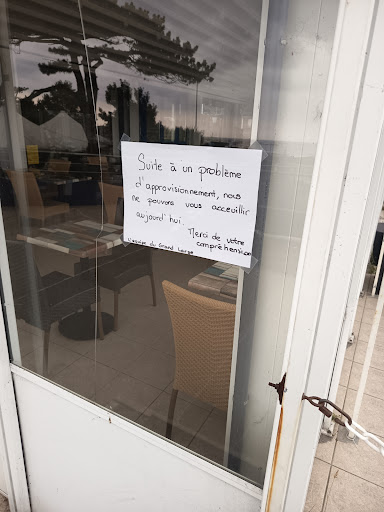 Suite à un problème
d'approvisionnement, nous
ne pouvons vous acceuillir
aujourd'hui.
Merci de votre
compréhension
L'équipe du Grand Large